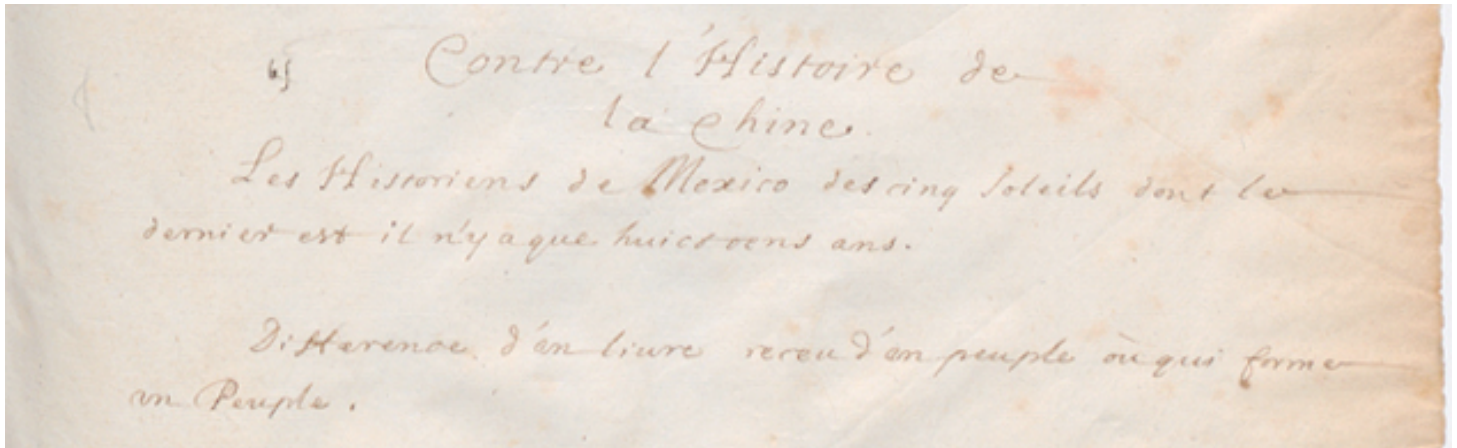 65 Contre l'Histoire de
la Chine.
Les Historiens de Mexico des cinq soleils dont le
dernier est il n'y a que huict cens ans.
Difference d'un liure receu d'un peuple où qui forme
un Peuple.